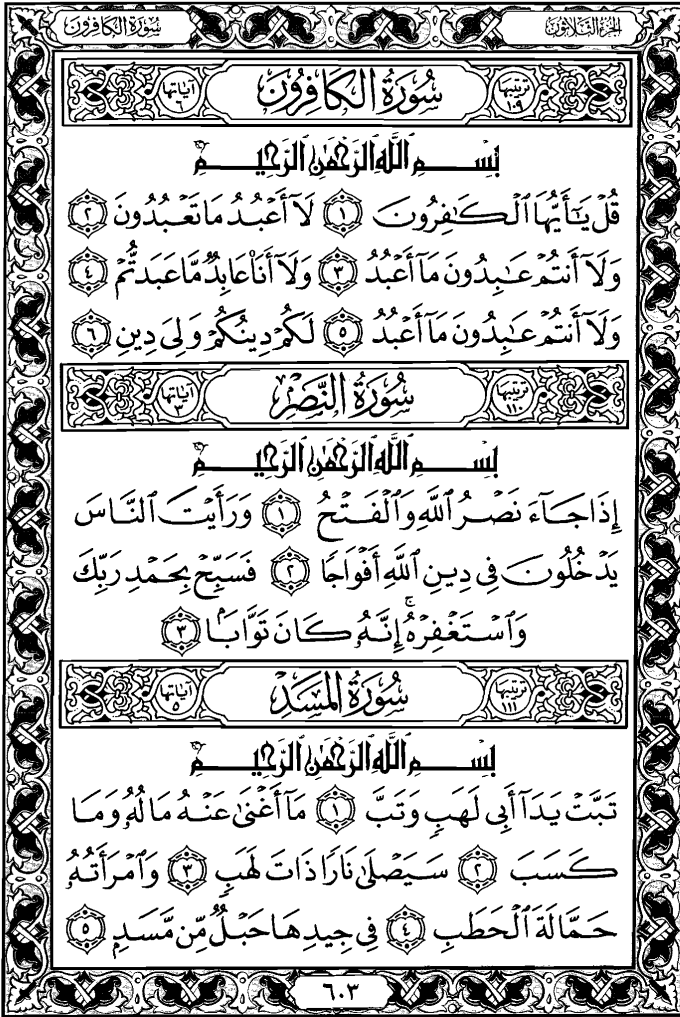 الجزء الثلاثون
سورة الكافرون
ترتيبها ١٠٩ سُورَةُ الكافِرُون آياتها ٦
بِسْمِ ٱللَّهِ ٱلرَّحْمَٰنِ ٱلرَّحِيمِ
قُلْ يَٰٓأَيُّهَا ٱلْكَٰفِرُونَ ١ لَآ أَعْبُدُ مَا تَعْبُدُونَ ٢
وَلَآ أَنتُمْ عَٰبِدُونَ مَآ أَعْبُدُ ٣ وَلَآ أَنَا۠ عَابِدٌ مَّا عَبَدتُّمْ ٤
وَلَآ أَنتُمْ عَٰبِدُونَ مَآ أَعْبُدُ ٥ لَكُمْ دِينُكُمْ وَلِىَ دِينِ ٦
ترتيبها ١١٠ سُورَةُ النَّصْر آياتها ٣
بِسْمِ ٱللَّهِ ٱلرَّحْمَٰنِ ٱلرَّحِيمِ
إِذَا جَآءَ نَصْرُ ٱللَّهِ وَٱلْفَتْحُ ١ وَرَأَيْتَ ٱلنَّاسَ
يَدْخُلُونَ فِى دِينِ ٱللَّهِ أَفْوَاجًا ٢ فَسَبِّحْ بِحَمْدِ رَبِّكَ
وَٱسْتَغْفِرْهُ ۚ إِنَّهُۥ كَانَ تَوَّابًۢا ٣
ترتيبها ١١١ سُورَةُ المَسَد آياتها ٥
بِسْمِ ٱللَّهِ ٱلرَّحْمَٰنِ ٱلرَّحِيمِ
تَبَّتْ يَدَآ أَبِى لَهَبٍ وَتَبَّ ١ مَآ أَغْنَىٰ عَنْهُ مَالُهُۥ وَمَا
كَسَبَ ٢ سَيَصْلَىٰ نَارًا ذَاتَ لَهَبٍ ٣ وَٱمْرَأَتُهُۥ
حَمَّالَةَ ٱلْحَطَبِ ٤ فِى جِيدِهَا حَبْلٌ مِّن مَّسَدٍۭ ٥
٦٠٣